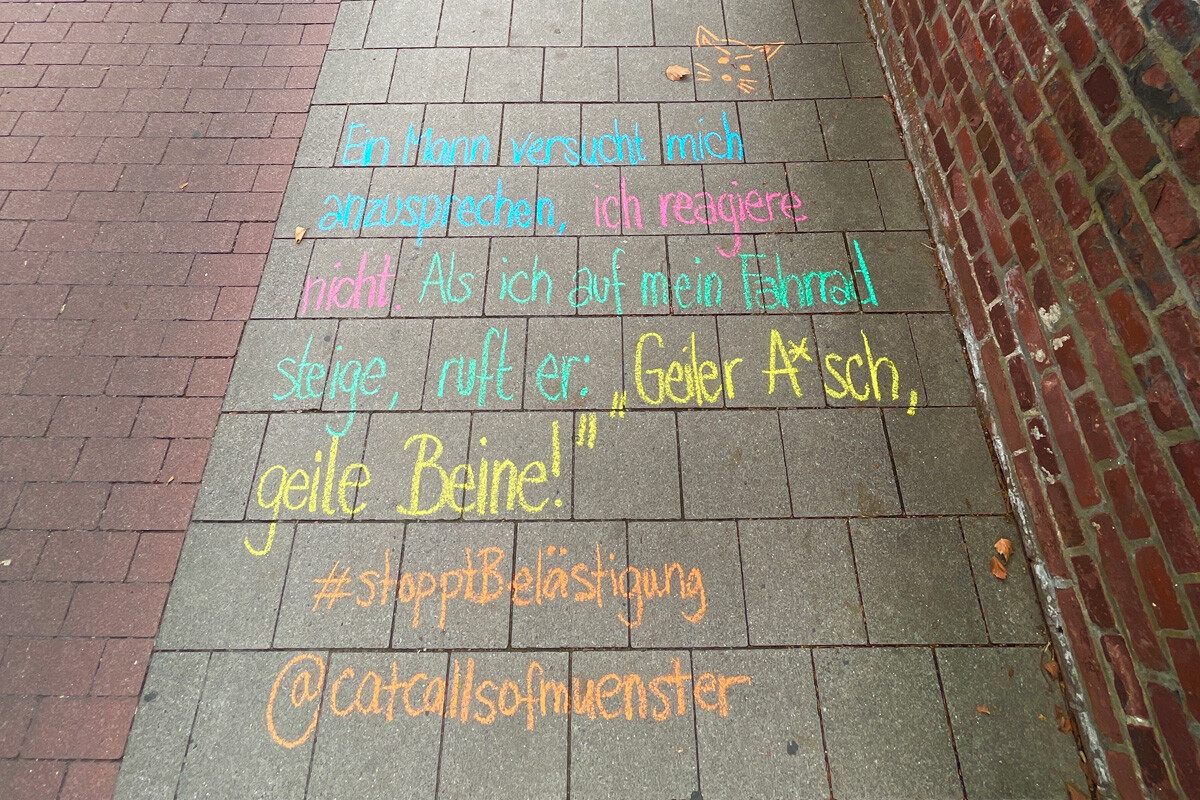 Ein Mann versucht mich
anzusprechen, ich reagiere
nicht. Als ich auf mein Fahrrad
steige, ruft er: „Geiler A*sch,
geile Beine!"
#stopptBelästigung
@catcallsofmuenster